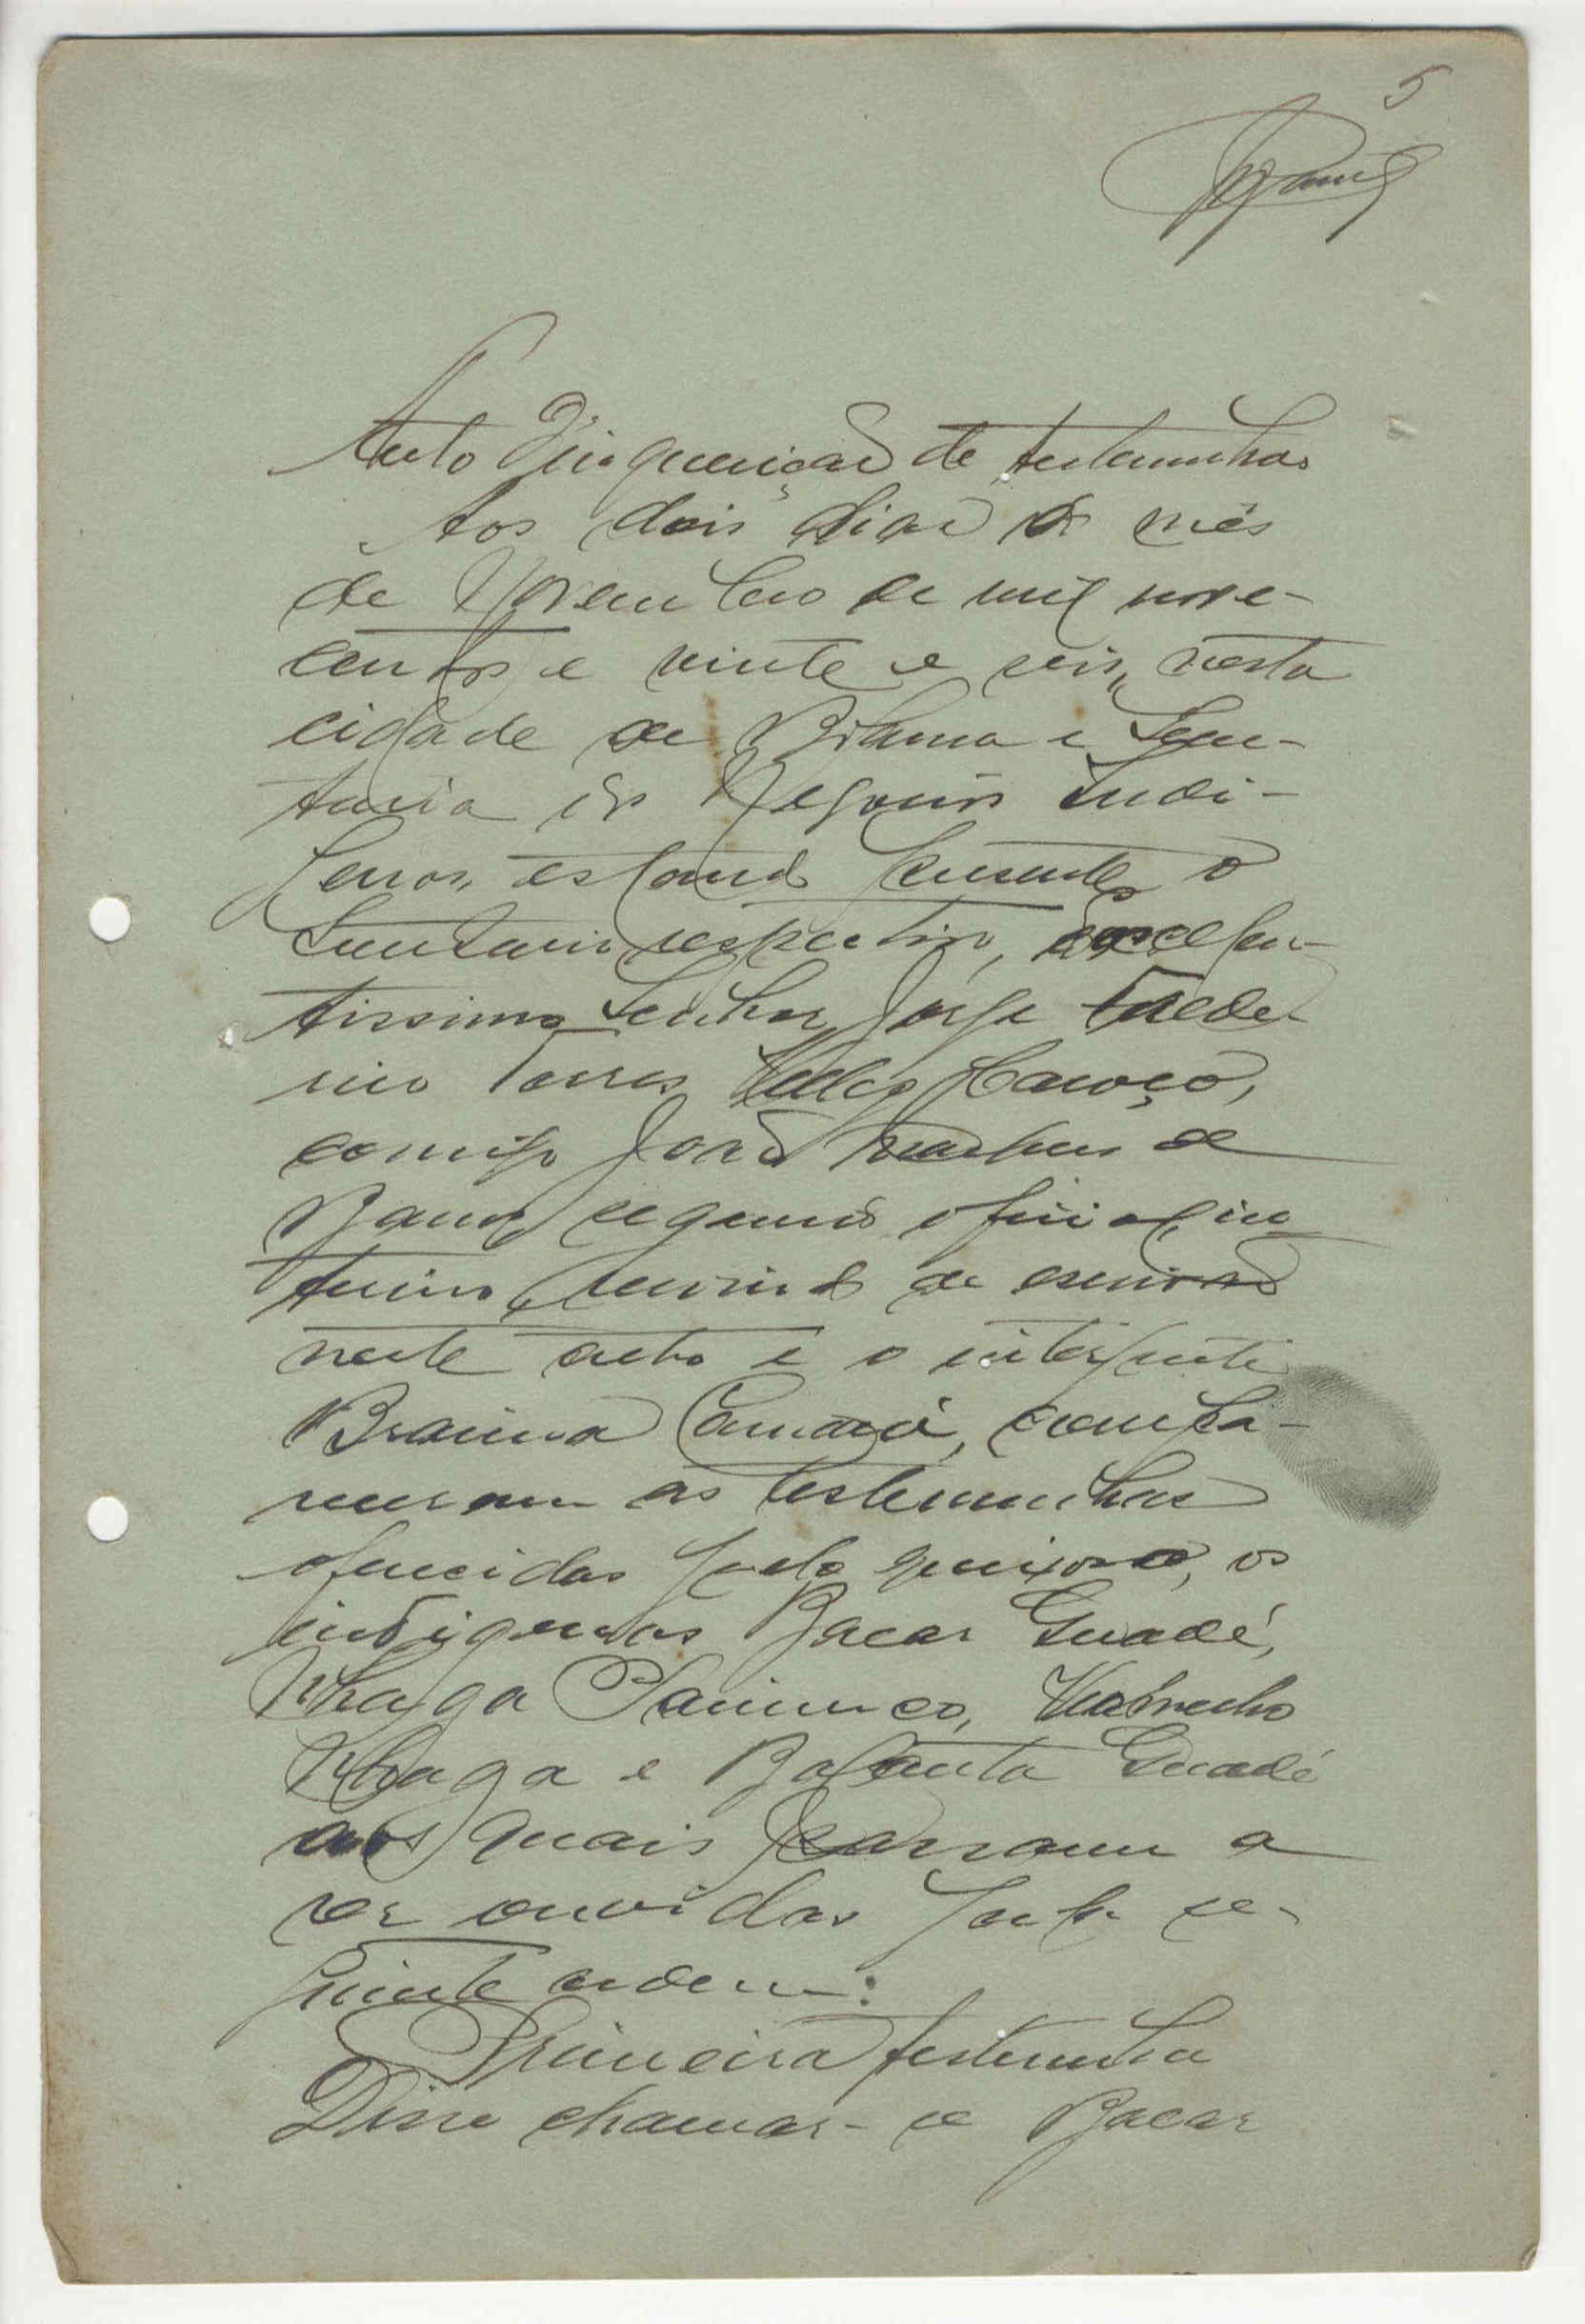 5
Auto d'inquirição de testemunhas
Aos dois dias do mês
de Novembro de mil nove-
centos e vinte e seis, nesta
cidade de Bolama e Secre-
taria dos Negocios Indi-
genas, estando presente o
Secretario respectivo, Excelen-
tissimo Senhor Jorge Frede-
rico Torres Velez Caroço,
comigo João de
Barros segundo oficial, in-
terino, servindo de escrivão
neste auto e o interprete
Braima Camará, compa-
receram as testemunhas
oferecidas pelo queixoso, os
indigenas Bacar Guadé,
Nhaga
Nhaga e Balanta Guadé
aos quais passaram a
ser ouvidas pela se-
guinte ordem:
Primeira testemunha
Disse chamar-se Bacar